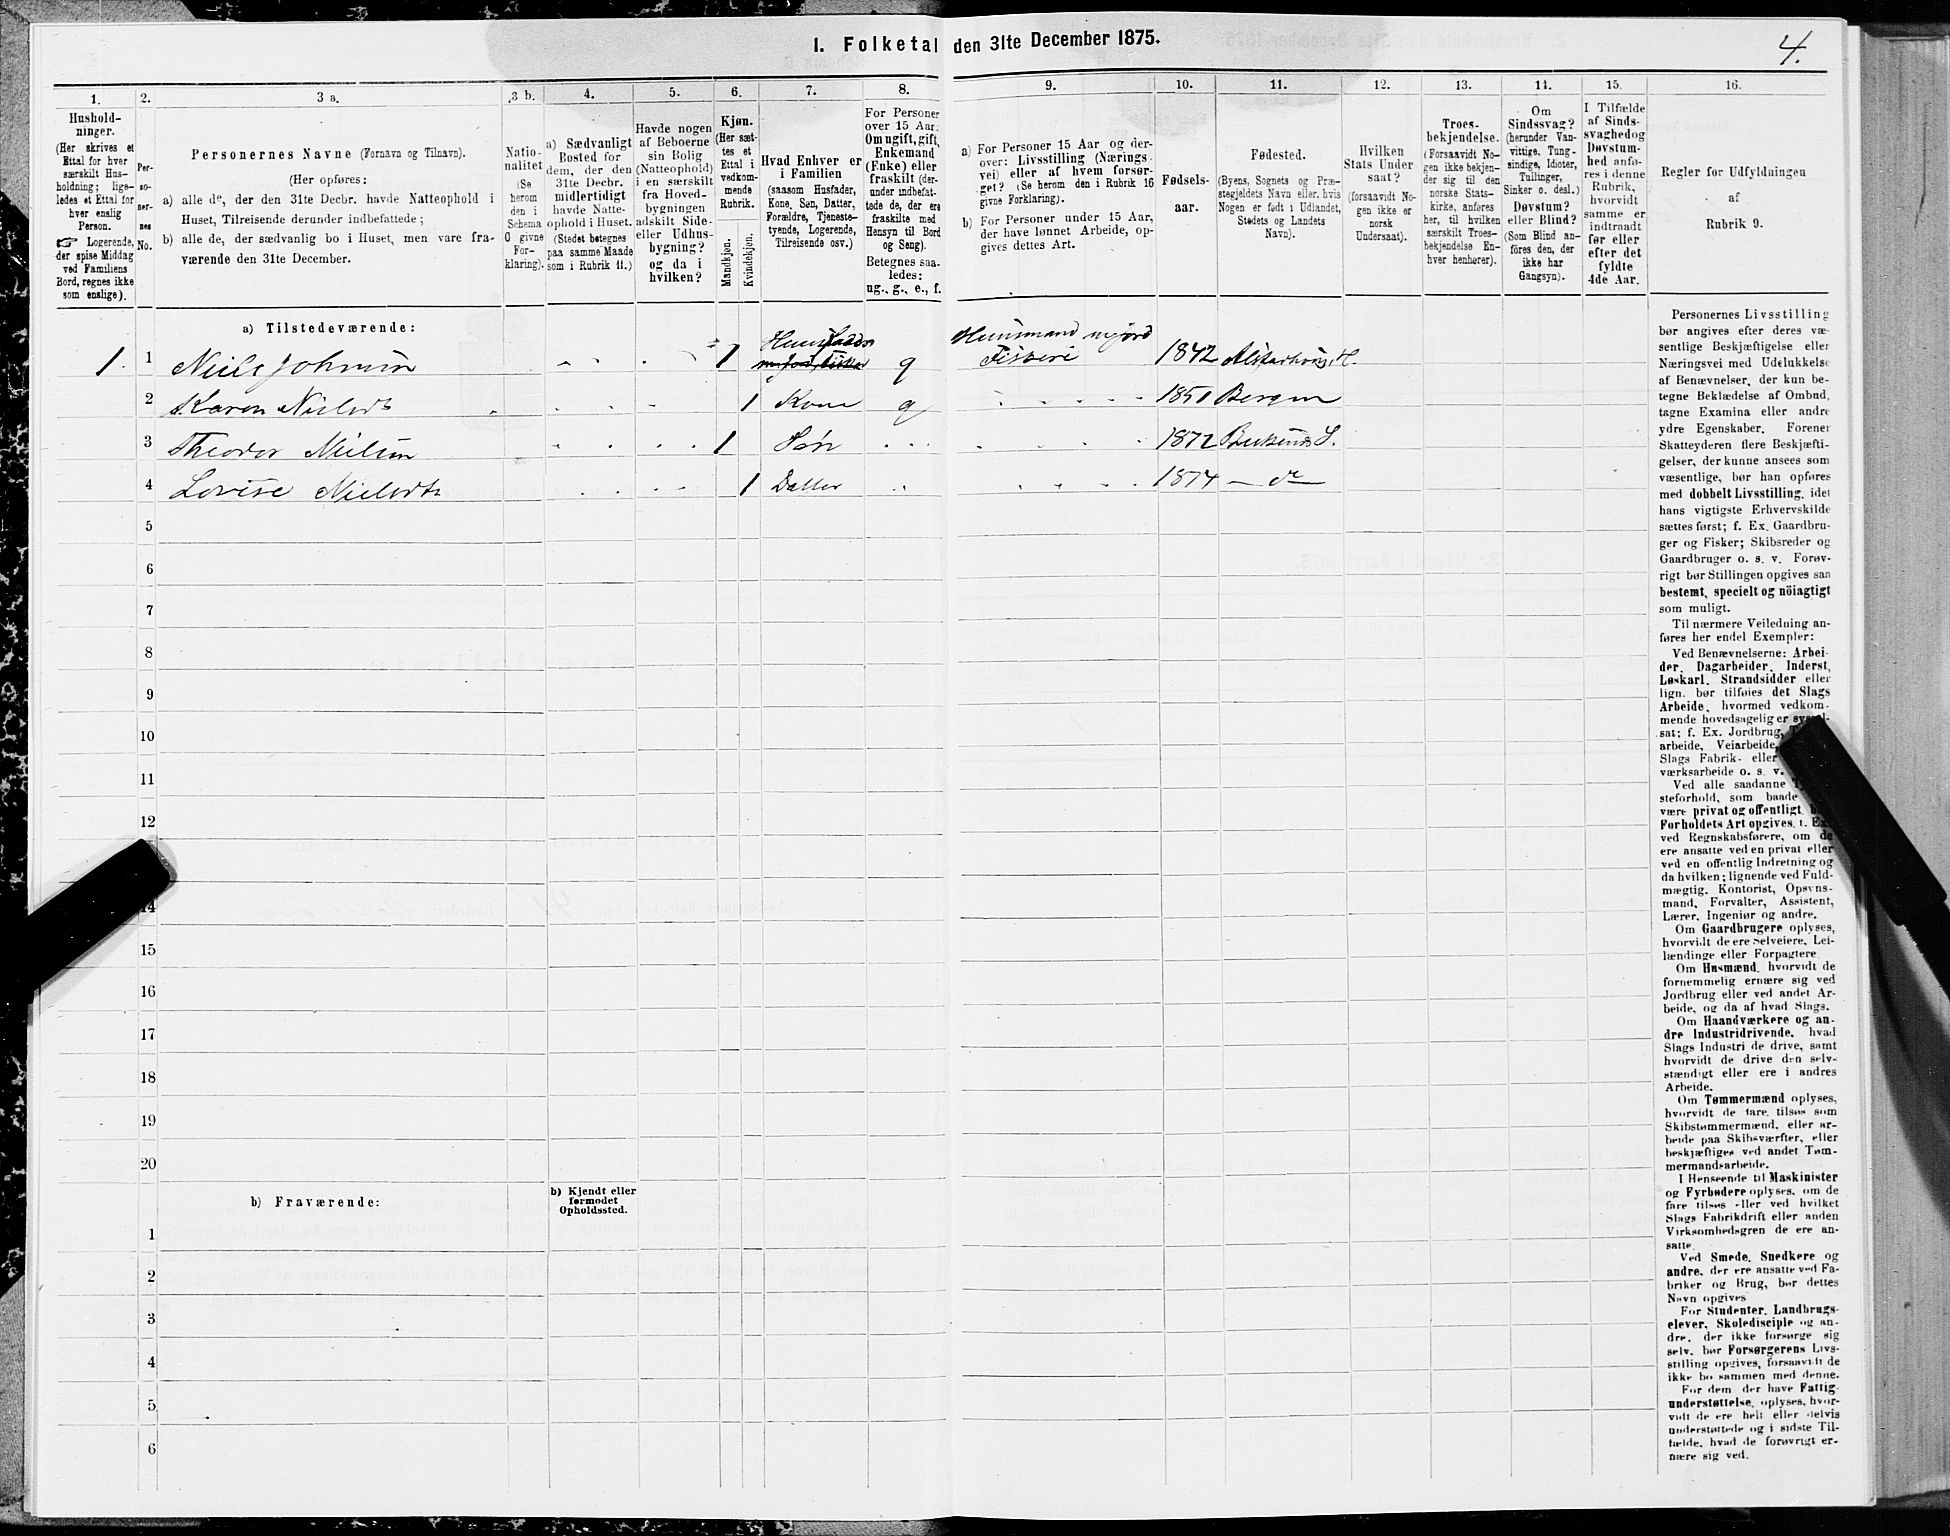 I. Folketal den 31te December 1875.
4.
1.
Hushold-
ninger.
(Her skrives et
Ettal for hver
særskilt Hus-
holdning; lige-
ledes et Ettal for
hver enslig
Person.
☞ Logerende,
der spise Middag
ved Familiens
Bord, regnes ikke
som enslige).
2.
Per-
so-
ner-
nes
No.
3 a.
Personernes Navne (Fornavn og Tilnavn).
(Her opføres:
a) alle de, der den 31te Decbr. havde Natteophold i
Huset, Tilreisende derunder indbefattede;
b) alle de, der sædvanlig bo i Huset, men vare fra-
værende den 31te December.
3 b.
Natio-
nalitet
(Se
herom
den i
Schema
O givne
For-
klaring).
4.
a) Sædvanligt
Bosted for
dem, der den
31te Decbr.
midlertidigt
havde Natte-
ophold i Huset.
(Stedet betegnes
paa samme Maade
som i Rubrik 11.)
5.
Havde nogen
af Beboerne
sin Bolig
(Natteophold)
i en særskilt
fra Hoved-
bygningen
adskilt Side-
eller Udhus-
bygning?
og da i
hvilken?
6.
Kjøn.
(Her sæt-
tes et
Ettal i
vedkom-
mende
Rubrik.
Mandkjøn.
Kvindekjøn.
7.
Hvad Enhver er
i Familien
(saasom Husfader,
Kone, Søn, Datter,
Forældre, Tjeneste-
tyende, Logerende,
Tilreisende osv.)
8.
For Personer
over 15 Aar:
Om ugift, gift,
Enkemand
(Enke) eller
fraskilt (der-
under indbefat-
tede de, der ere
fraskilte med
Hensyn til Bord
og Seng).
Betegnes saa-
ledes:
ug., g., e., f.
9.
a) For Personer 15 Aar og der-
over: Livsstilling (Nærings-
vei) eller af hvem forsør-
get? (Se herom den i Rubrik 16
givne Forklaring).
b) For Personer under 15 Aar,
der have lønnet Arbeide, op-
gives dettes Art.
10.
Fødsels-
aar.
11.
Fødested.
(Byens, Sognets og Præ-
stegjeldets Navn eller, hvis
Nogen er født i Udlandet,
Stedets og Landets
Navn).
12.
Hvilken
Stats Under
saat?
(forsaavidt No-
gen ikke er
norsk
Undersaat).
13.
Troes-
bekjendelse.
(Forsaavidt No-
gen ikke bekjen-
der sig til den
norske Stats-
kirke, anføres
her, til hvilken
særskilt Troes-
bekjendelse En-
hver henhører).
14.
Om
Sindssvag?
(herunder Van-
vittige, Tung-
sindige, Idioter,
Tullinger,
Sinker o. desl.)
Døvstum?
eller Blind?
(Som Blind an-
føres den, der
ikke har
Gangsyn).
15.
I Tilfælde
af Sinds-
svaghed og
Døvstum-
hed anfø-
res i denne
Rubrik,
hvorvidt
samme er
indtraadt
før eller
efter det
fyldte
4de Aar.
16.
Regler for Udfyldningen
af
Rubrik 9.
a) Tilstedeværende:
1. 1 Niels Johnsen 1 Huusfader g Huusmand m/jord Fiskeri 1842
2 Karen Nielsdt 1 Kone g 1851 Bergen
3 Theodor Nielsen 1 Søn 1872
4 Lovise Nielsdt 1 Datter 1874 — do —
5
6
7
8
9
10
11
12
14
15
16
17
18
19
20
b) Fraværende:
b) Kjendt eller
formodet
Opholdssted.
1
2
3
4
5
6
Personernes Livsstilling
bør angives efter deres væ-
sentlige Beskjæftigelse eller
Næringsvei med Udelukkelse
af Benævnelser, der kun be-
tegne Beklædelse af Ombud,
tagne Examina eller andre
ydre Egenskaber. Forener
Skatteyderen flere Beskjæfti-
gelser, der kunne ansees som
væsentlige, bør han opføres
med dobbelt Livsstilling, idet
hans vigtigste Erhvervskilde
sættes først; f. Ex. Gaardbru-
ger og Fisker; Skibsreder og
Gaardbruger o. s. v. Forøv-
rigt bør Stillingen opgives saa
bestemt, specielt og nöiagtigt
som muligt.
Til nærmere Veiledning an-
føres her endel Exempler:
Ved Benævnelserne: Arbei-
der, Dagarbeider, Inderst,
Løskarl, Strandsidder eller
lign. bør tilføies det Slags
Arbeide, hvormed vedkom-
mende hovedsagelig er
sat; f. Ex. Jordbrug,
arbeide, Veiarbeide,
Slags Fabrik- eller
værksarbeide o. s. v.
Ved alle saadanne
steforhold, som baade
være privat og offentligt,
Forholdets Art opgives, f. Ex.
ved Regnskabsførere, om de
ere ansatte ved en privat eller
ved en offentlig Indretning og
da hvilken; lignende ved Fuld-
mægtig, Kontorist, Opsyns-
mand, Forvalter, Assistent,
Lærer, Ingeniør og andre.
Om Gaardbrugere oplyses,
hvorvidt de ere Selveiere, Lei-
lændinge eller Forpagtere.
Om Husmænd, hvorvidt de
fornemmelig ernære sig ved
Jordbrug eller ved andet Ar-
beide, og da af hvad Slags.
Om Haandværkere og an-
dre Industridrivende, hvad
Slags Industri de drive, samt
hvorvidt de drive den selv-
stændigt eller ere i andres
Arbeide.
Om Tømmermænd oplyses,
hvorvidt de fare tilsøs som
Skibstømmermænd, eller ar-
beide paa Skibsværfter, eller
beskjæftiges ved andet Tøm-
mermandsarbeide.
I Henseende til Maskinister
og Fyrbødere oplyses, om de
fare tilsøs eller ved hvilket
Slags Fabrikdrift eller anden
Virksomhedsgren de ere an-
satte.
Ved Smede, Snedkere og
andre, der ere ansatte ved Fa-
briker og Brug, bør dettes
Navn opgives
For Studenter, Landbrugs-
elever, Skoledisciple og an-
dre, der ikke forsørge sig
selv, bør Forsørgerens Livs-
stilling opgives, forsaavidt de
ikke bo sammen med denne.
For dem, der have Fattig-
understøttelse, oplyses, hvor-
vidt de ere helt eller delvis
understøttede og i sidste Til-
fælde, hvad de forøvrigt er-
nære sig ved.